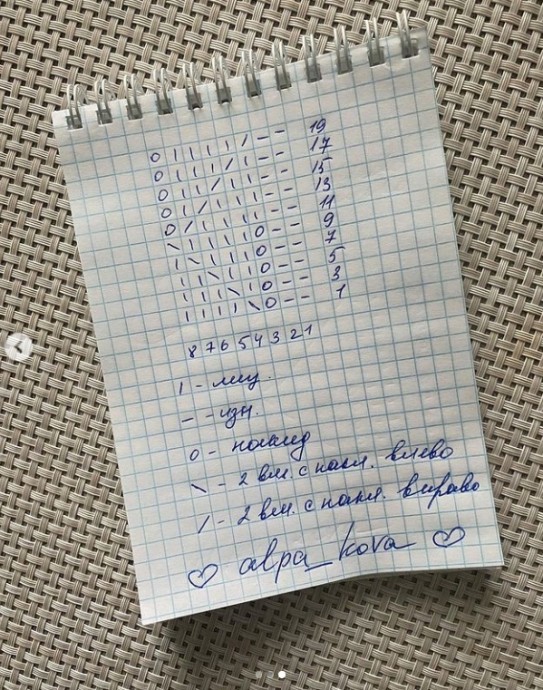 0 | | | | / - - 19
0 | | | / | - - 17
0 | | / | | - - 15
0 | / | | | - - 13
0 / | | | | - - 11
\ | | | | 0 - - 9
| \ | | | 0 - - 7
| | \ | | 0 - - 5
| | | \ | 0 - - 3
| | | | \ 0 - - 1
8 7 6 5 4 3 2 1
| - лиц.
- - изн.
0 - накид
\ - 2 вм. с накл. влево
/ - 2 вм. с накл. вправо
♡ alpa_kova ♡